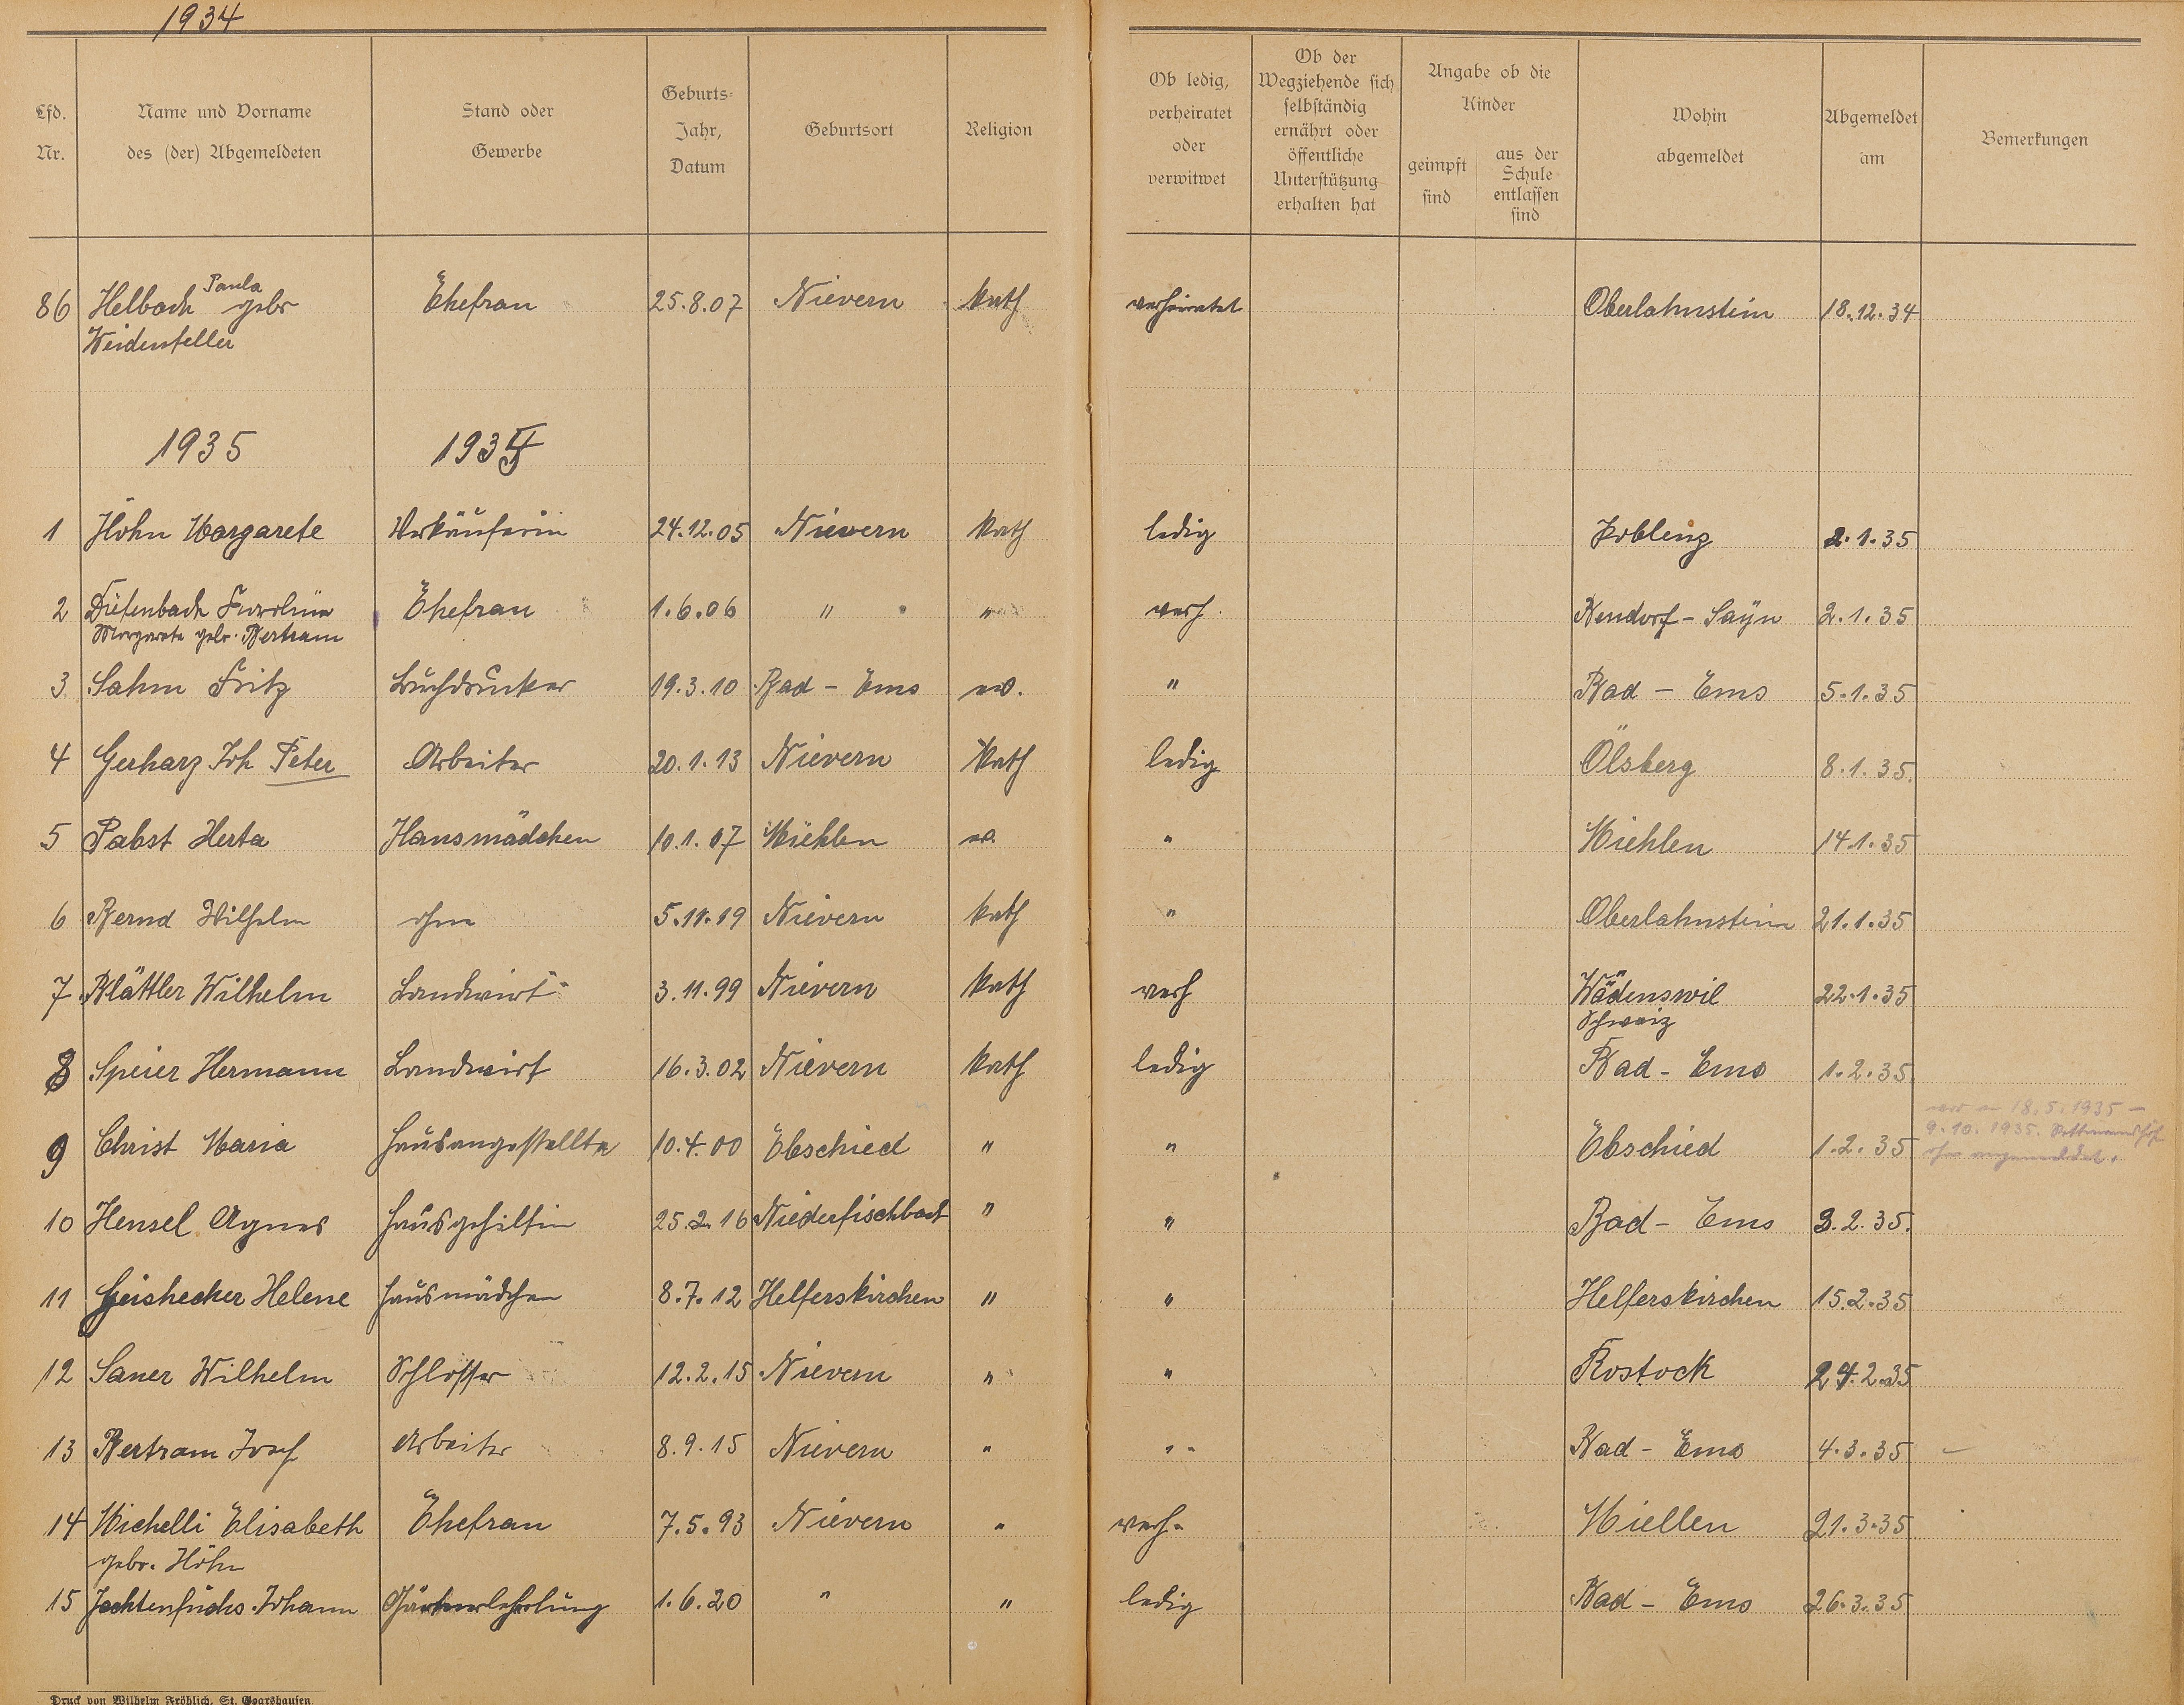 1934
Lfd. Nr.
Name und Vorname des (der) Abgemeldeten
Stand oder Gewerbe
Geburts- Jahr, Datum
Geburtsort
Religion
Ob ledig, verheiratet oder verwitwet
Ob der Wegziehende sich selbständig ernährt oder öffentliche Unterstützung erhalten hat
Angabe ob die Kinder
geimpft sind
aus der Schule entlassen sind
Wohin abgemeldet
Abgemeldet am
Bemerkungen
Paula
86 Helbach gebr Ehefrau 25.8.07 Nievern kath verheiratet Oberlahnstein 18.12.34
Weidenfeller
1935 1935
1 Höhn Margarete Verkäuferin 24.12.05 Nievern kath ledig Koblenz 2.1.35
2 Diefenbach Karoline Ehefrau 1.6.06 " " verh. Bendorf - Sayn 2.1.35
Margarete gebr. Bertram
3 Sahm Fritz Buchdrucker 19.3.10 Bad - Ems ev. " Bad - Ems 5.1.35
4 Gerharz Joh Peter Arbeiter 20.1.13 Nievern kath ledig Ölsberg 8.1.35.
5 Pabst Herta Hausmädchen 10.1.07 Miehlen ev. " Miehlen 14.1.35
6 Bernd Wilhelm ohne 5.11.19 Nievern kath " Oberlahnstein 21.1.35
7 Blättler Wilhelm Landwirt 3.11.99 Nievern kath verh Wädenswil 22.1.35
Schweiz
8 Speier Hermann Landwirt 16.3.02 Nievern kath ledig Bad - Ems 1.2.35.
9 Christ Maria Hausangestellte 10.4.00 Ebschied " " Ebschied 1.2.35
18.5.1935 -
9.10.1935.
10 Hensel Agnes Hausgehilfin 25.2.16 Niederfischbach " " Bad - Ems 3.2.35.
11 Geishecker Helene Hausmädchen 8.7.12 Helferskirchen " " Helferskirchen 15.2.35
12 Sauer Wilhelm Schlosser 12.2.15 Nievern " " Rostock 24.2.35
13 Bertram Josef Arbeiter 8.9.15 Nievern " " Bad - Ems 4.3.35 -
14 Michelli Elisabeth Ehefrau 7.5.93 Nievern " verh. Miellen 21.3.35
gebr. Höhn
15 Jachtenfuchs Johann Gärtnerlehrling 1.6.20 " " ledig Bad - Ems 26.3.35
Druck von Wilhelm Fröhlich, St. Goarshausen.